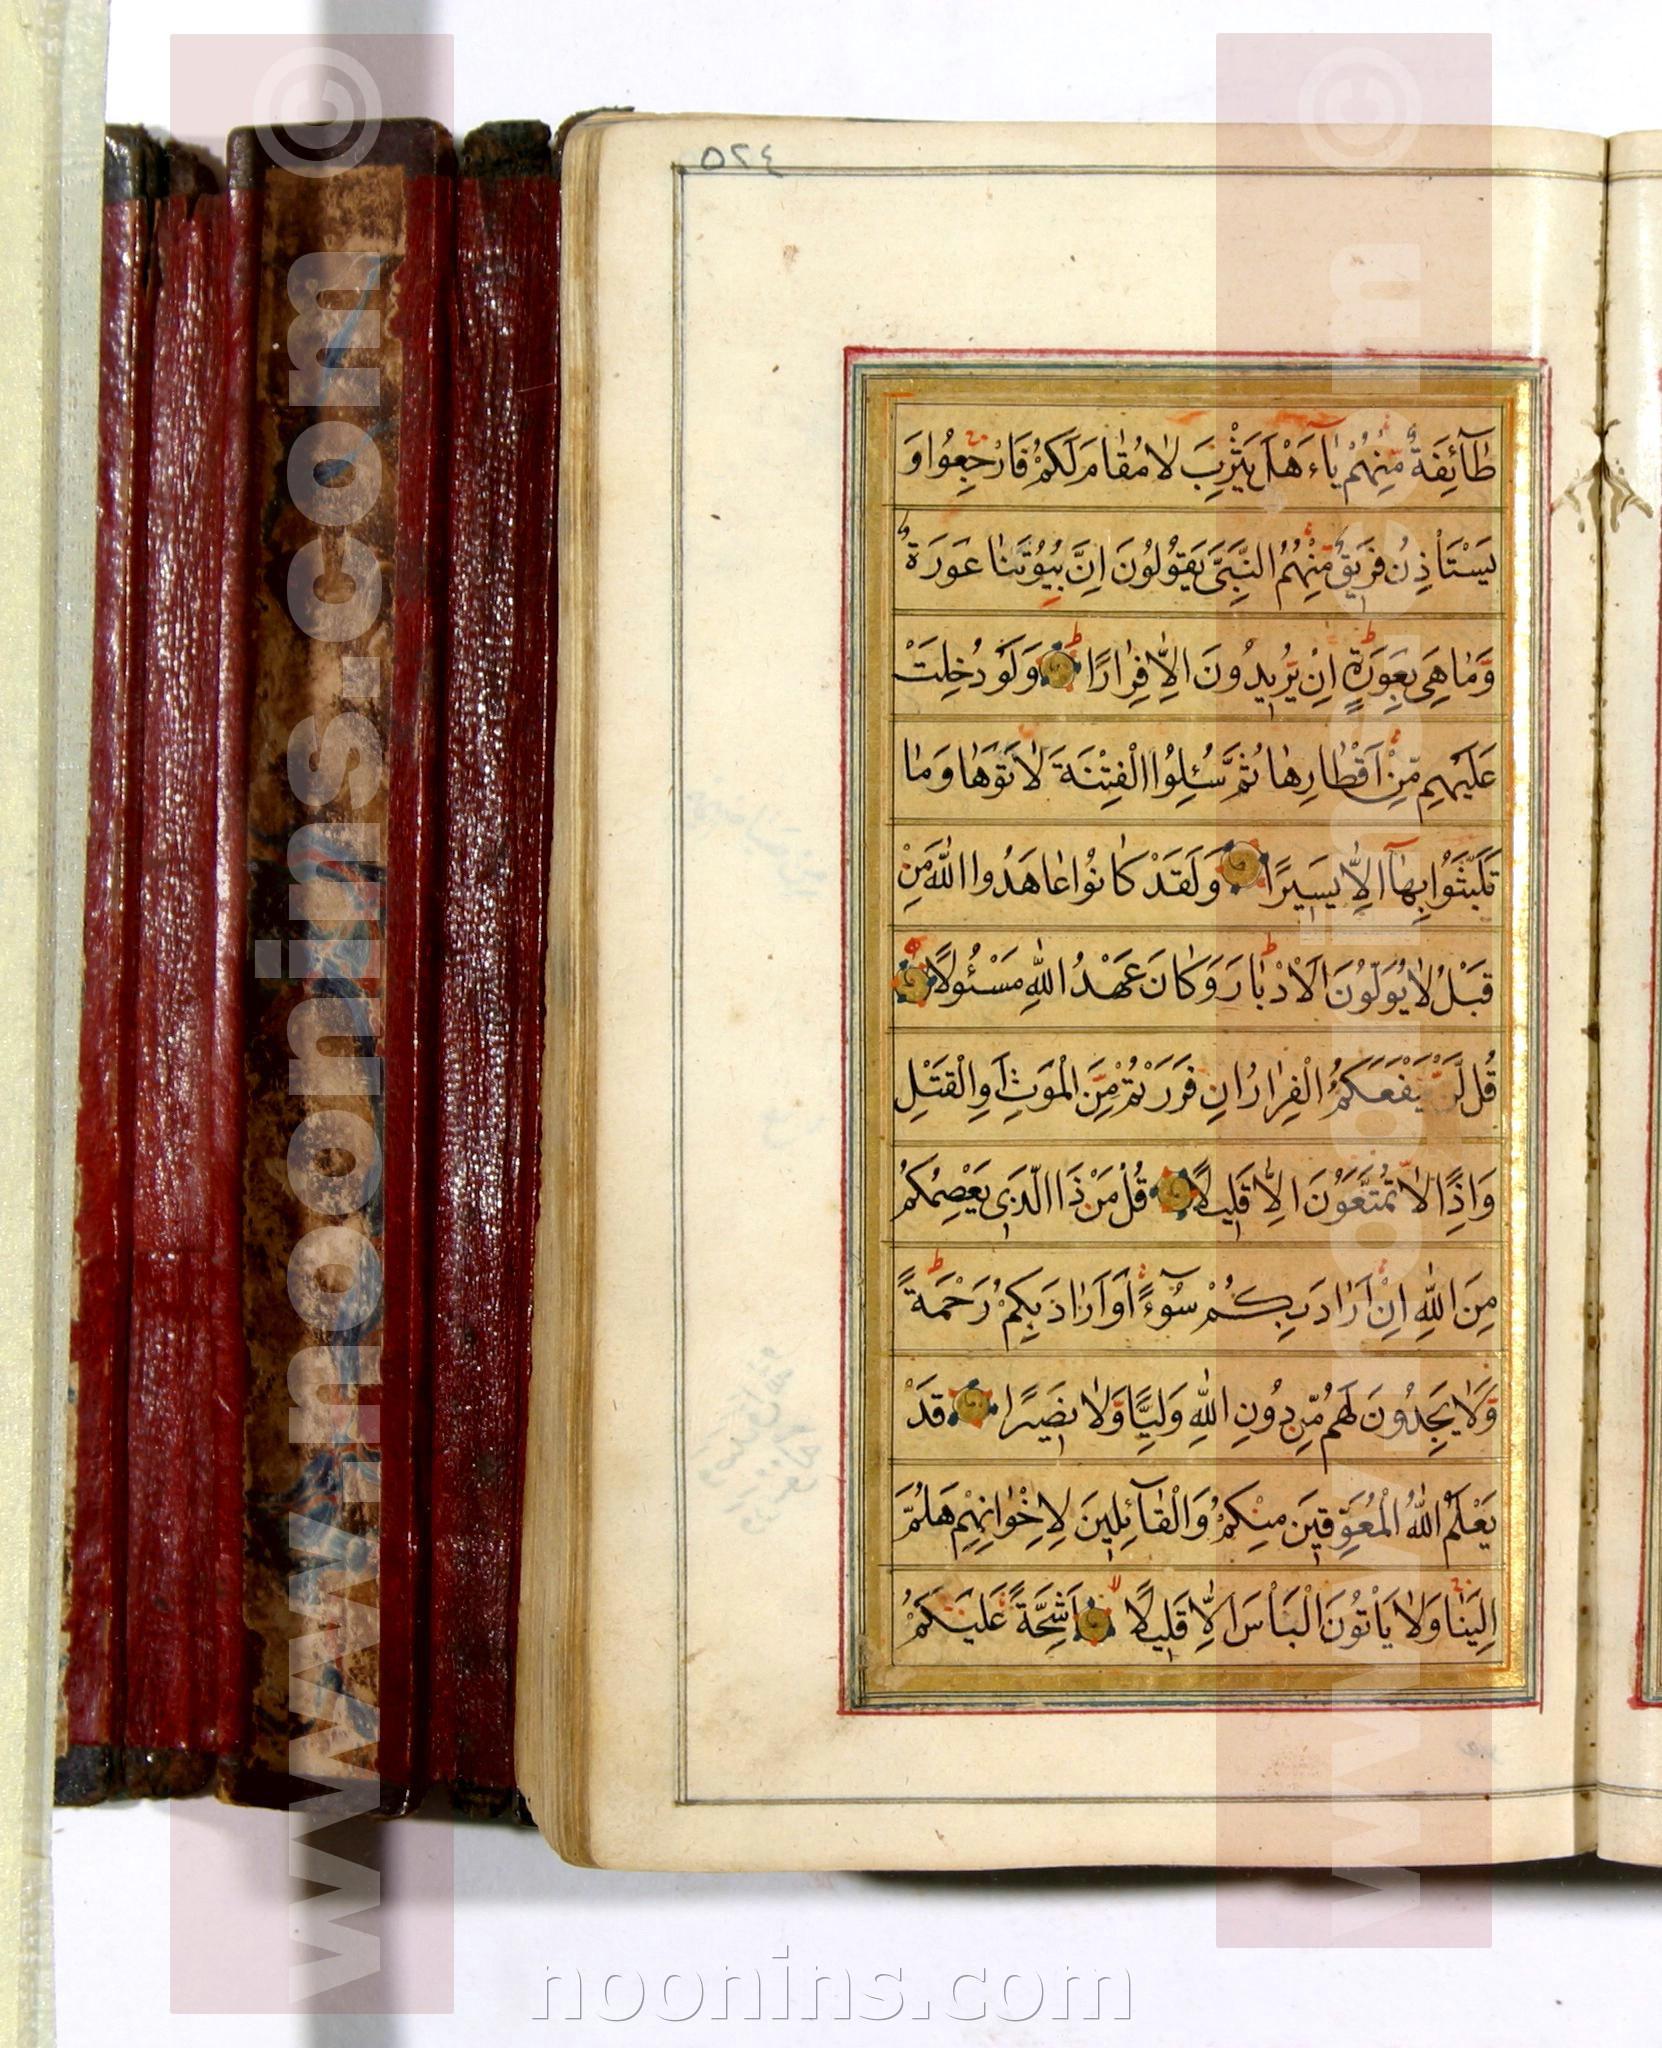 ۵۲٤
طَآئِفَةٌ مِّنْهُمْ يٰاءَهْلَ يَثْرِبَ لٰا مُقٰامَ لَكُمْ فَارْجِعُوا وَ
يَسْتَأْذِنُ فَرِيقٌ مِّنْهُمُ النَّبِىَّ يَقُولُونَ اِنَّ بُيُوتَنٰا عَوْرَةٌ
وَّمٰا هِىَ بِعَوْرَةٍ اِنْ يُّرِيدُونَ اِلاّٰ فِرٰارًا وَلَوْ دُخِلَتْ
عَلَيْهِمْ مِّنْ اَقْطٰارِهٰا ثُمَّ سُئِلُوا الْفِتْنَةَ لَاٰتَوْهٰا وَمٰا
تَلَبَّثُوا بِهٰآ اِلاّٰ يَسِيرًا وَلَقَدْ كٰانُوا عٰاهَدُوا اللّٰهَ مِنْ
قَبْلُ لٰا يُوَلُّونَ الْاَدْبٰارَ وَكٰانَ عَهْدُ اللّٰهِ مَسْئُولًا
قُلْ لَّنْ يَّنْفَعَكُمُ الْفِرٰارُ اِنْ فَرَرْتُمْ مِّنَ الْمَوْتِ اَوِ الْقَتْلِ
وَاِذًا لٰا تُمَتَّعُونَ اِلاّٰ قَلِيلًا قُلْ مَنْ ذَا الَّذِى يَعْصِمُكُمْ
مِنَ اللّٰهِ اِنْ اَرٰادَ بِكُمْ سُوٓءًا اَوْ اَرٰادَ بِكُمْ رَحْمَةً
وَّلٰا يَجِدُونَ لَهُمْ مِّنْ دُونِ اللّٰهِ وَلِيًّا وَّلٰا نَصِيرًا قَدْ
يَعْلَمُ اللّٰهُ الْمُعَوِّقِينَ مِنْكُمْ وَالْقٰآئِلِينَ لِاِخْوٰانِهِمْ هَلُمَّ
اِلَيْنٰا وَلٰا يَأْتُونَ الْبَأْسَ اِلاّٰ قَلِيلًا اَشِحَّةً عَلَيْكُمْ
www.noonins.com ©
www.noonins.com ©
noonins.com